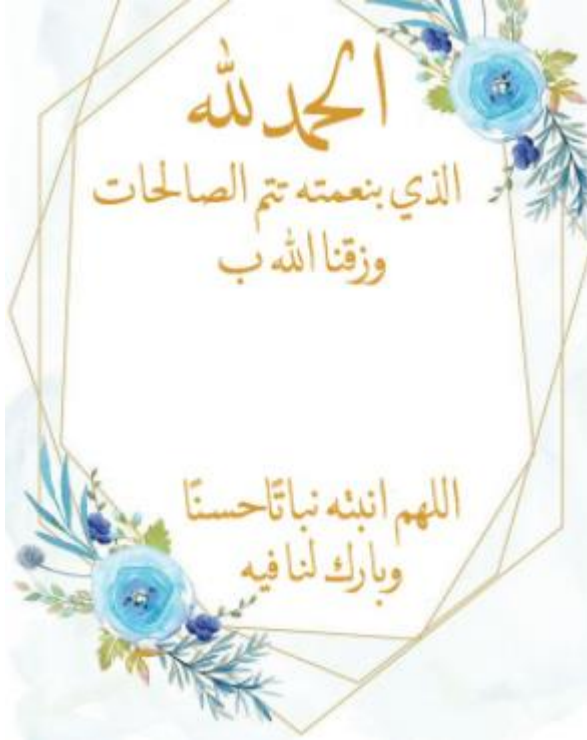 الحمد لله
الذي بنعمته تتم الصالحات
وزقنا الله ب
اللهم انبته نباتًا حسنًا
وبارك لنا فيه